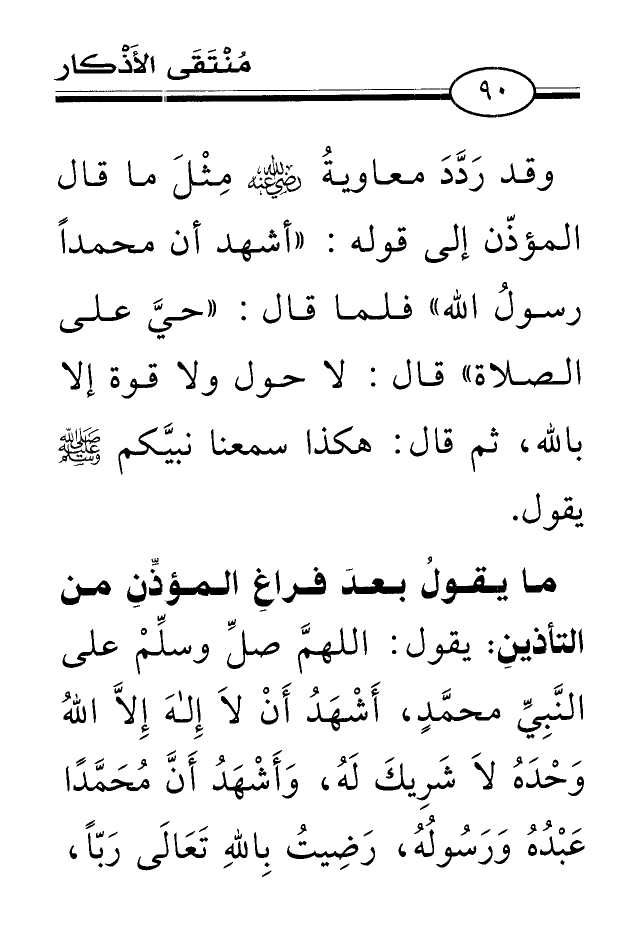 مُنْتَقَى الأَذْكار
٩٠
وقد رَدَّدَ معاويةُ رضي الله عنه مِثْلَ ما قال
المؤذّن إلى قوله : «أشهد أن محمداً
رسولُ الله» فلما قال : «حيَّ على
الصلاة» قال : لا حول ولا قوة إلا
بالله، ثم قال: هكذا سمعنا نبيَّكم ﷺ
يقول.
ما يقولُ بعدَ فراغِ المؤذِّنِ من
التأذينِ: يقول: اللهمَّ صلِّ وسلِّمْ على
النَّبِيِّ محمَّدٍ، أَشْهَدُ أَنْ لاَ إِلـٰهَ إِلاَّ اللهُ
وَحْدَهُ لاَ شَرِيكَ لَهُ، وَأَشْهَدُ أَنَّ مُحَمَّدًا
عَبْدُهُ وَرَسُولُهُ، رَضِيتُ بِاللهِ تَعَالَى رَبّاً،